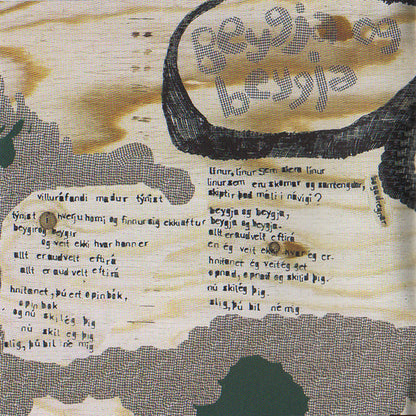 Beygja og
beygja
villuráfandi maður týnist
týnist í hverju horni og finnur sig ekki aftur
beygir og beygir
og veit ekki hvar hann er
allt er auðvelt eftirá
allt er auðvelt eftirá
hnitanet, þú ert opin bók,
opin bók
og nú skil ég þig
nú skil ég þig
alig, þú bil í né mig
línur, línur sem alera línur
línur sem eru skornar og samtengdar,
skiptir það máli í návígi?
beygja og beygja,
beygja og beygja.
allt er auðvelt eftirá
en ég veit ekki hvar ég er.
hnitanet ég veit ég get
opnað, opnað og skilið þig.
nú skil ég þig.
alig, þú bil né mig